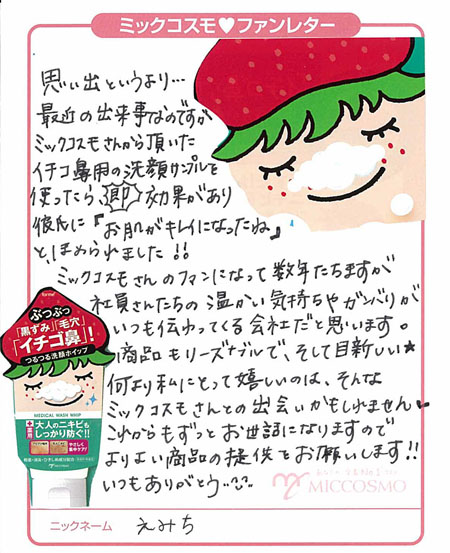 ミックコスモ♥ファンレター
思い出というより…
最近の出来事なのですが
ミックコスモさんから頂いた
イチゴ鼻用の洗顔サンプルを
使ったら、即効果があり
彼氏に『お肌がキレイになったね』
と、ほめられました!!
ミックコスモさんのファンになって数年たちますが
社員さんたちの温かい気持ちやガンバリが
いつも伝わってくる会社だと思います。
商品もリーズナブルで、そして目新しい★
何より私にとって嬉しいのは、そんな
ミックコスモさんとの出会いかもしれません♥
これからもずっとお世話になりますので
よりよい商品の提供をお願いします!!
いつもありがとう
ぶつぶつ
「黒ずみ」「毛穴」
「イチゴ鼻」!
つるつる洗顔ホイップ
MEDICAL WASH WHIP
大人のニキビも
しっかり防ぐ!!
MICCOSMO
ニックネーム えみち